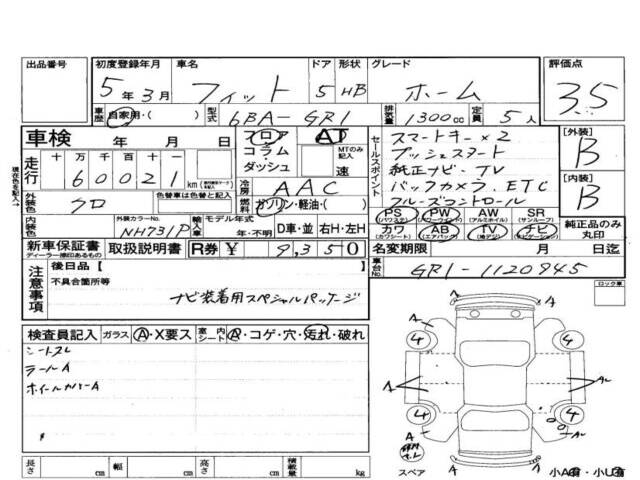 出品番号 初度登録年月 車名 ドア 形状 グレード 評価点
5年3月 フィット 5 HB ホーム 3.5
車歴 自家用・( ) 型式 6BA-GR1 排気量 1300cc 定員 5人
車検 年 月 日 フロア AT
コラム MTのみ記入
ダッシュ 速
走行 十万 万 千 百 十 一
60021 km
冷房 AAC
外装色 クロ 色替車は色替前と記入 燃料 ガソリン・軽油・( )
内装色 外装カラーNo. NH731P 輸入車 モデル年式 年・不明 D車・並 右H・左H
セールスポイント
スマートキー×2
プッシュスタート
純正ナビ・TV
バックカメラ、ETC
クルーズコントロール
PS PW AW SR
(パワステ) (パワーウィンド) (アルミホイル) (サンルーフ)
カワ AB TV ナビ
(カワシート) (エアバック) (地デジ) (ナビゲーション)
[外装] B
[内装] B
純正品のみ丸印
現在色を記入→
新車保証書 取扱説明書 R券 ¥ 9,350 名変期限 月 日迄
ディーラー捺印あるもの
車台No. GR1-1120945
注意事項 後日品【 】
不具合箇所等
ナビ装着用スペシャルパッケージ
ロック車
検査員記入 ガラス A・X要ス 室内シート A・コゲ・穴・汚れ・破れ
シートスレ
ラールA
ホイールカバーA
A A
4 4
A A
A Aル
4 4
A A
スペア 小A有・小U有
長さ cm 幅 cm 高さ cm 積載量 kg